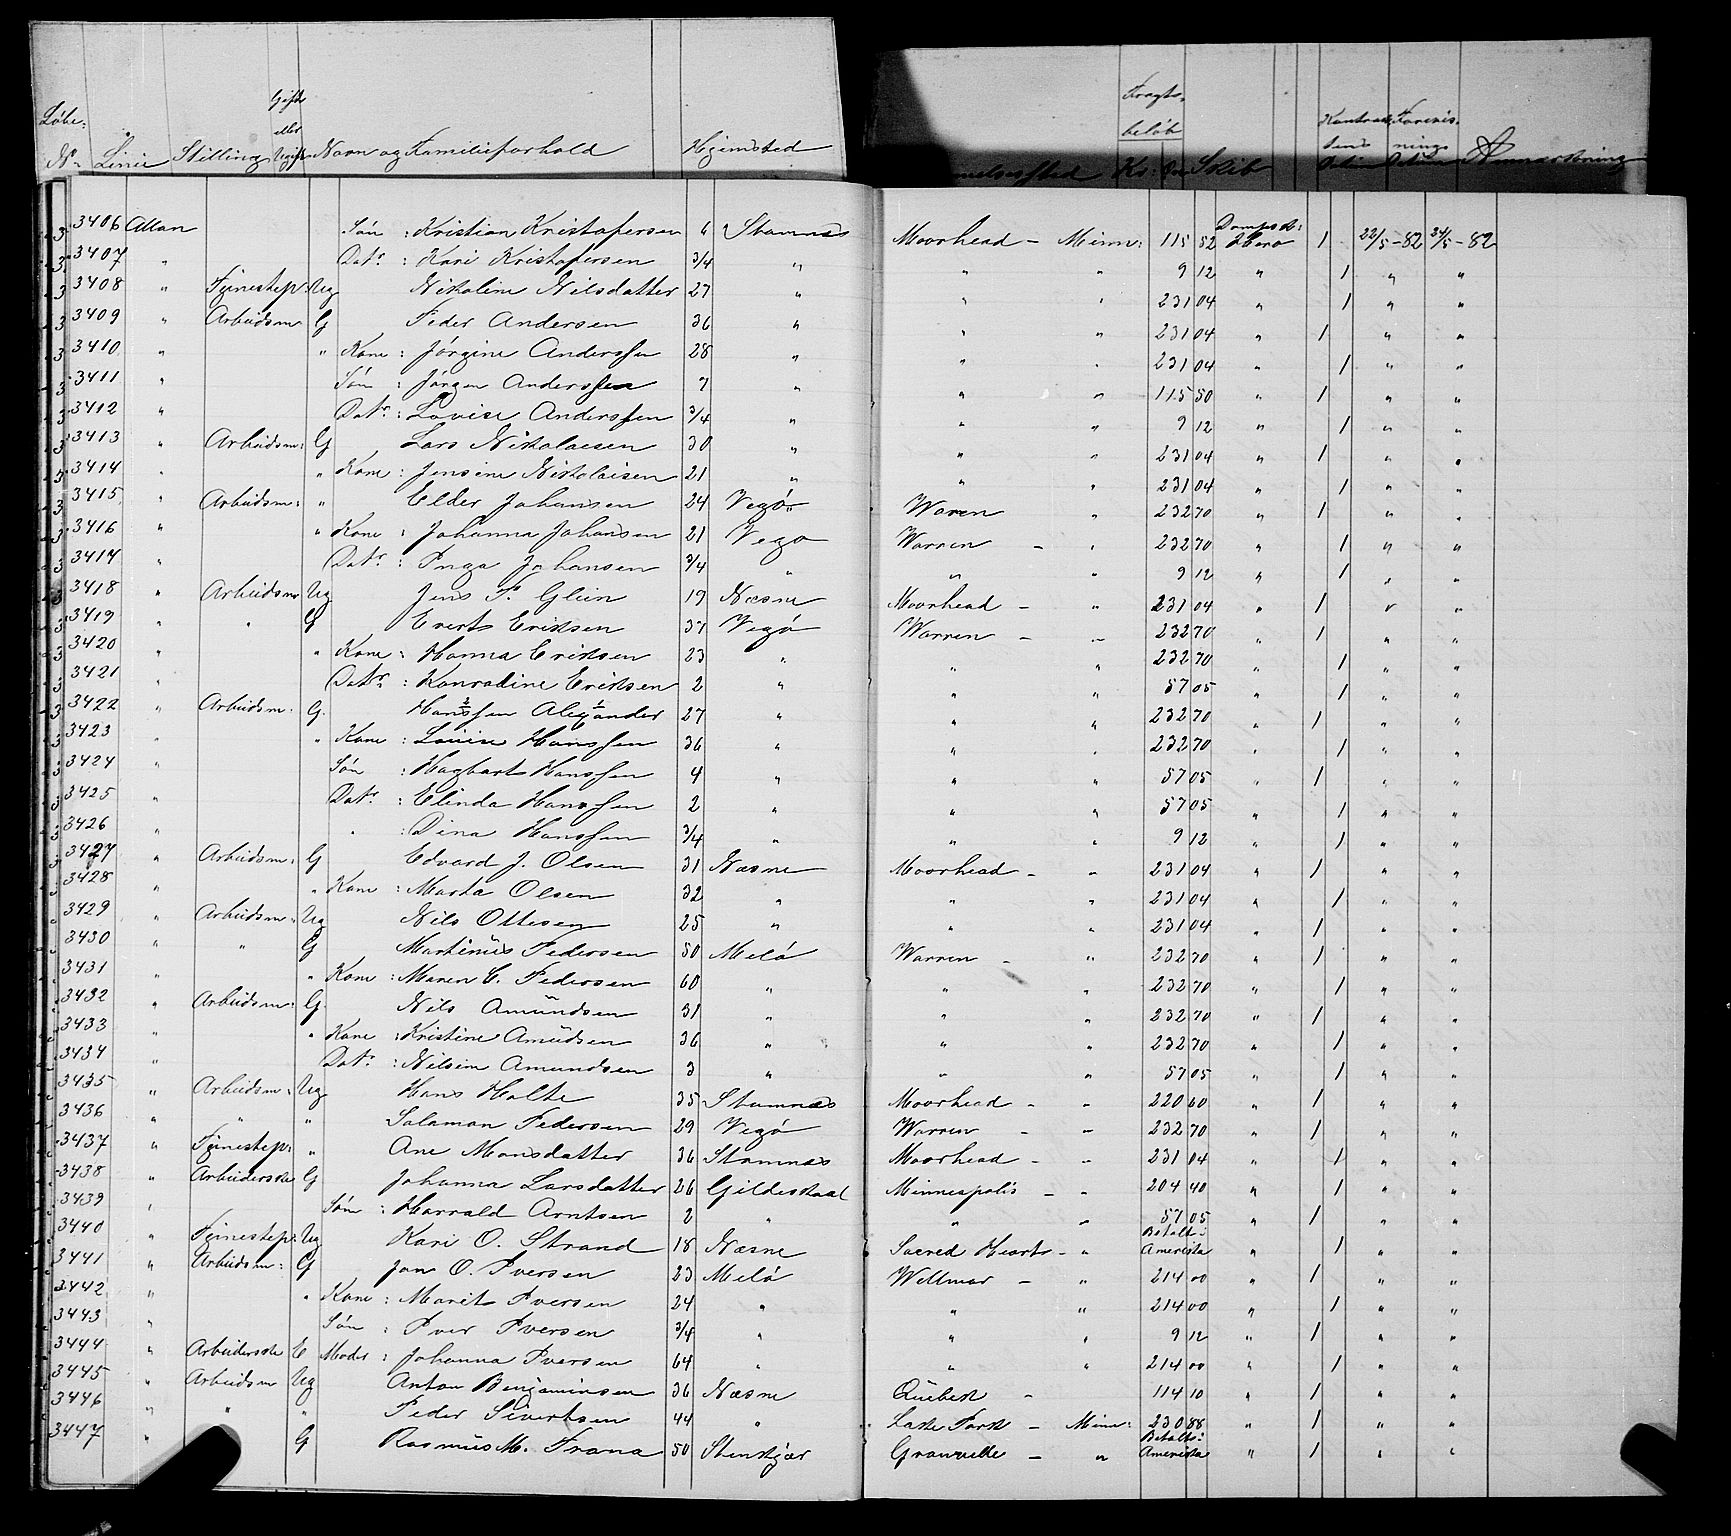 Løbe: N: Linie Stilling Gift eller Ugift Navn og Familieforhold Hjemsted melsessted Fragtbeløb Kr: Øre Skib Kontraktens Datum Forevisnings Datum Anmærkning
3406 Allan Søn : Kristian Kristofersen 6 Stamnæs Moorhead – Minn: 115 52 Dampsk: Hero 1 22/5–82 24/5–82
3407 " Datr : Kari Kristofersen 3/4 " " " 9 12 " 1 " "
3408 " Tjenestep: Ug Nikoline Nilsdatter 27 " " " 231 04 " 1 " "
3409 " Arbeidsm G Peder Andersen 36 " " " 231 04 " 1 " "
3410 " " Kone : Jørgine Anderssen 28 " " " 231 04 " 1 " "
3411 " Søn : Jørgen Anderssen 7 " " " 115 50 " 1 " "
3412 " Datr : Lovise Anderssen 3/4 " " " 9 12 " 1 " "
3413 " Arbeidsm: G Lars Nikolaesen 30 " " " 231 04 " 1 " "
3414 " " Kone : Jensine Nikolaisen 21 " " " 231 04 " 1 " "
3415 " Arbeidsm: " Elder Johansen 24 Vegø Waren " 232 70 " 1 " "
3416 " " Kone : Johanna Johansen 21 Vego Warren – " 232 70 " 1 " "
3414 Datr : Inga Johansen 3/4 " " " 9 12 " 1 " "
3418 " Arbeidsm Ug Jens P. Glein 19 Næsne Moorhead – " 231 04 " 1 " "
3419 " " G Everts Eriksen 37 Vegø Warren – " 232 70 " 1 " "
3420 " " Kone : Hanna Eriksen 23 " " " 232 70 " 1 " "
3421 " Datr : Konradine Eriksen 2 " " " 57 05 " 1 " "
3422 " Arbeidsm: G. Hanssen Alexander 27 " " " 232 70 " 1 " "
3423 " " Kone : Louise Hanssen 36 " " " 232 70 " 1 " "
3424 " Søn : Hagbart Hanssen 4 " " " 57 05 " 1 " "
3425 " Datr : Elinda Hanssen 2 " " " 57 05 " 1 " "
3426 " " : Dina Hanssen 3/4 " " " 9 12 " 1 " "
3427 " Arbeidsm: G Edvard J. Olsen 31 Næsne Moorhead – " 231 04 " 1 " "
3428 " " Kone : Marta Olsen 32 " " " 231 04 " 1 " "
3429 " Arbeidsm: Ug Nils Ottesen 25 " " " 231 04 " 1 " "
3430 " " G Martinus Pedersen 50 Melø Warren – " 232 70 " 1 " "
3431 " " Kone : Maren C. Pedersen 60 " " " 232 70 " 1 " "
3432 " Arbeidsm: G. Nils Amundsen 31 " " " 232 70 " 1 " "
3433 " " Kone : Kristine Amudsen 36 " " " 232 70 " 1 " "
3434 " Datr : Nilsine Amundsen 3 " " " 57 05 " 1 " "
3435 " Arbeidsm: Ug Hans Holte 35 Stamnæs Moorhead – " 220 60 " 1 " "
3436 " " " Salaman Pedersen 29 Vegø Warren – " 232 70 " 1 " "
3437 " Tjenestep: " Ane Monsdatter 36 Stamnæs Moorhead – " 231 04 " 1 " "
3438 " Arbeiderske G Johanna Larsdatter 26 Gildeskaal Minneapolis – " 204 40 " 1 " "
3439 " Søn : Harrald Arntsen 2 " " " 57 05 " 1 " "
3440 " Tjenestep: Ug Kari O. Strand 18 Næsne Sacred Heart – " Betalt i Amerika " 1 " "
3441 " Arbeidsm: G Jon O. Iversen 23 Melø Willmar – " 214 00 " 1 " "
3442 " " Kone : Marit Iversen 24 " " " 214 00 " 1 " "
3443 " Søn : Iver Iversen 3/4 " " " 9 12 " 1 " "
3444 " Arbeiderske E Moder : Johanna Iversen 64 " " " 214 00 " 1 " "
3445 " Arbeidsm Ug Anton Benjaminsen 36 Næsne Quebek – 114 10 " 1 " "
3446 " " " Peder Sivertsen 44 " Lake Park – Minn: 230 88 " 1 " "
3447 " G Rasmus M. Frana 50 Stenkjær Granville – " Betalt i Amerika " 1 " "